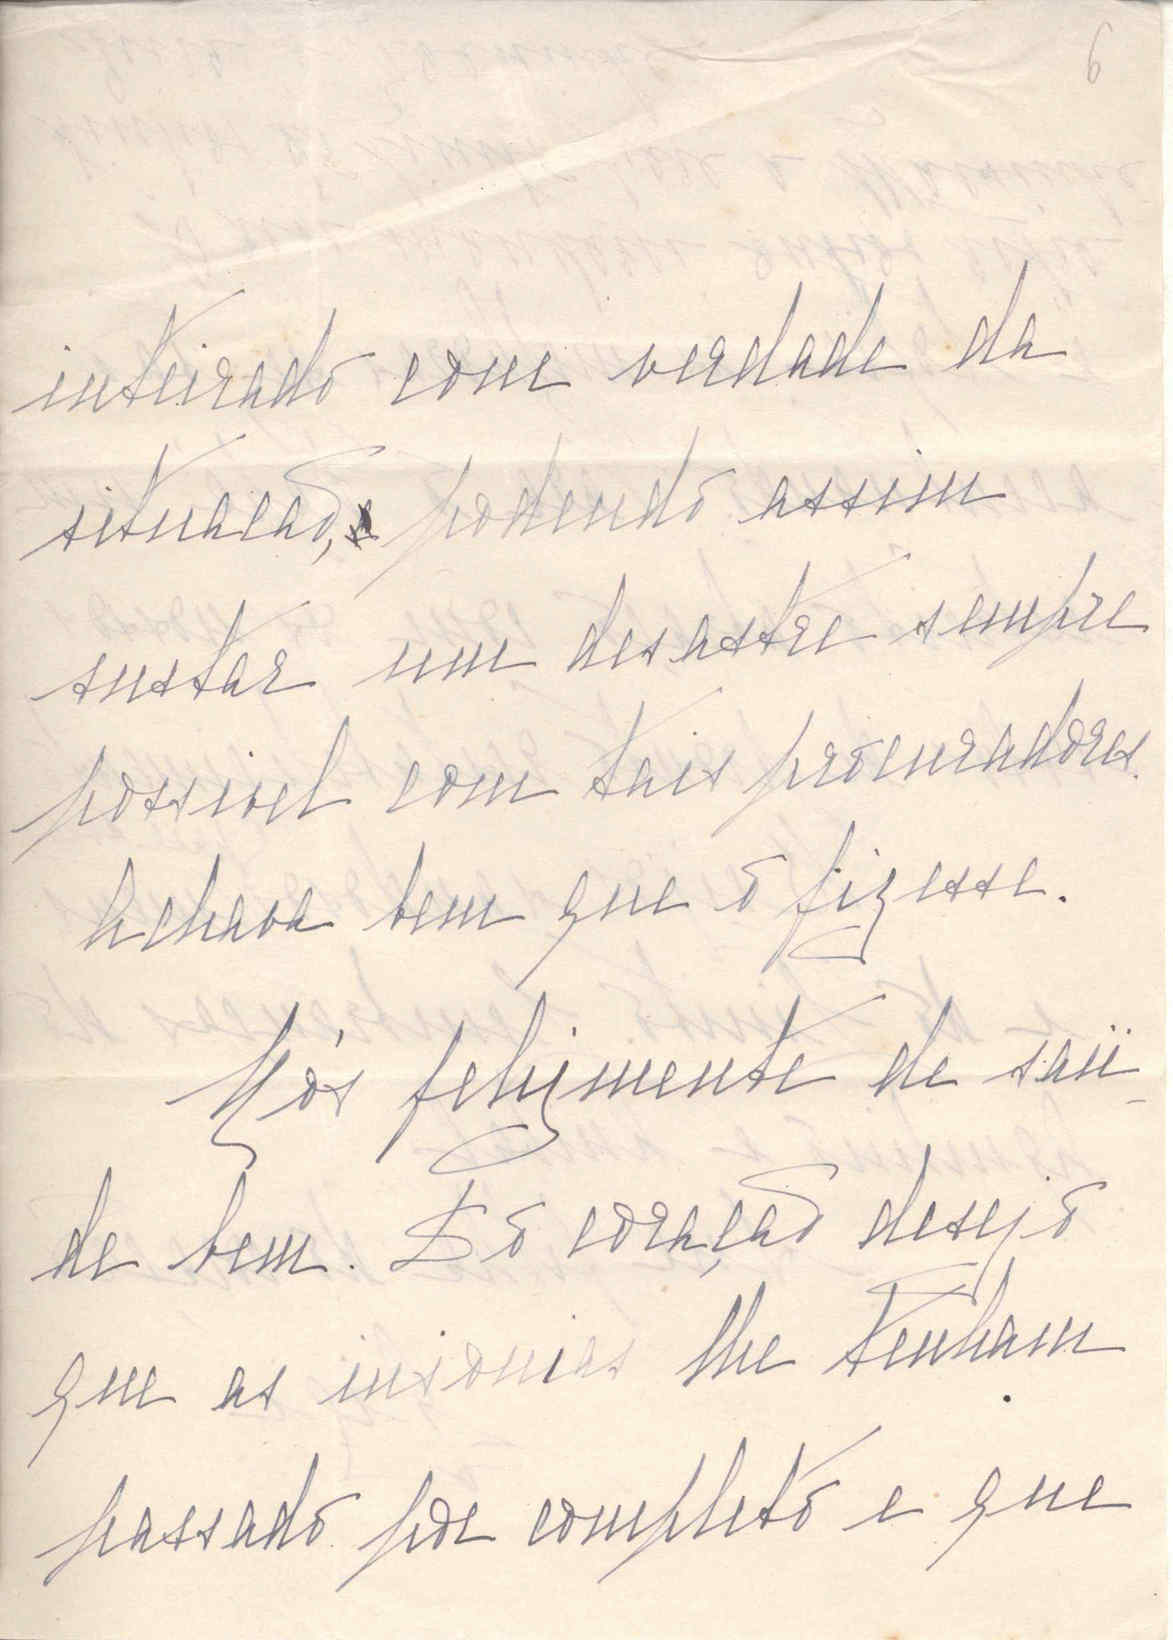 6
inteirado com verdade da
situação, e podendo assim
sustar um desastre sempre
possivel com tais procuradores.
Achava bem que o fizesse.
Nós felizmente de saú-
de bem. Do coração desejo
que as insonias lhe tenham
passado por completo e que